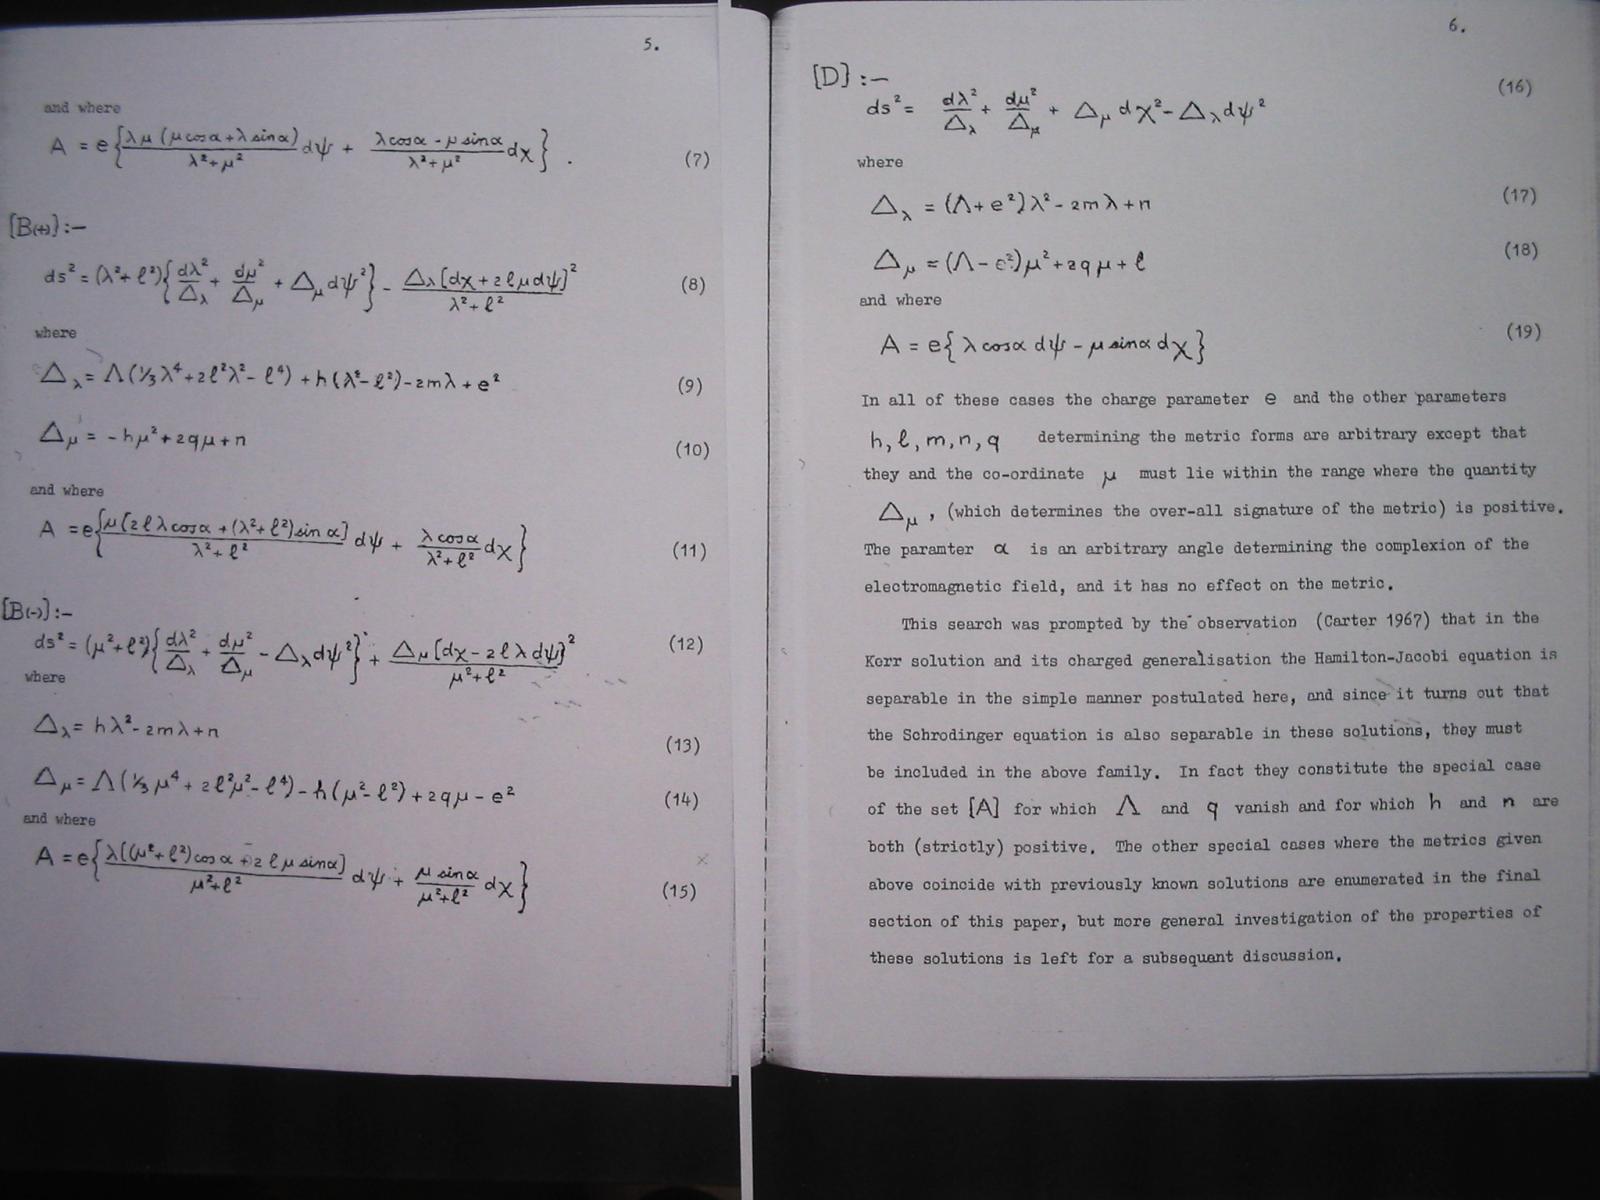 5.
and where
A = e{λμ(μcosα+λsinα)/λ²+μ² dψ + λcosα-μsinα/λ²+μ² dχ}. (7)
[B(+)]:-
ds² = (λ²+ℓ²){dλ²/Δλ + dμ²/Δμ + Δμdψ²} - Δλ[dχ+2ℓμdψ]²/λ²+ℓ² (8)
where
Δλ = Λ(1/3λ⁴+2ℓ²λ²-ℓ⁴)+h(λ²-ℓ²)-2mλ+e² (9)
Δμ = -hμ²+2qμ+n (10)
and where
A = e{μ[2ℓλcosα+(λ²+ℓ²)sinα]/λ²+ℓ² dψ + λcosα/λ²+ℓ² dχ} (11)
[B(-)]:-
ds² = (μ²+ℓ²){dλ²/Δλ + dμ²/Δμ - Δλdψ²} + Δμ[dχ-2ℓλdψ]²/μ²+ℓ² (12)
where
Δλ = hλ²-2mλ+n (13)
Δμ = Λ(1/3μ⁴+2ℓ²μ²-ℓ⁴)-h(μ²-ℓ²)+2qμ-e² (14)
and where
A = e{λ[(μ²+ℓ²)cosα+2ℓμsinα]/μ²+ℓ² dψ + μsinα/μ²+ℓ² dχ} (15)
6.
[D]:-
ds² = dλ²/Δλ + dμ²/Δμ + Δμdχ²-Δλdψ² (16)
where
Δλ = (Λ+e²)λ²-2mλ+n (17)
Δμ = (Λ-e²)μ²+2qμ+ℓ (18)
and where
A = e{λcosα dψ - μsinα dχ} (19)
In all of these cases the charge parameter e and the other parameters
h, ℓ, m, n, q determining the metric forms are arbitrary except that
they and the co-ordinate μ must lie within the range where the quantity
Δμ, (which determines the over-all signature of the metric) is positive.
The paramter α is an arbitrary angle determining the complexion of the
electromagnetic field, and it has no effect on the metric.
This search was prompted by the observation (Carter 1967) that in the
Kerr solution and its charged generalisation the Hamilton-Jacobi equation is
separable in the simple manner postulated here, and since it turns out that
the Schrodinger equation is also separable in these solutions, they must
be included in the above family. In fact they constitute the special case
of the set [A] for which Λ and q vanish and for which h and n are
both (strictly) positive. The other special cases where the metrics given
above coincide with previously known solutions are enumerated in the final
section of this paper, but more general investigation of the properties of
these solutions is left for a subsequant discussion.